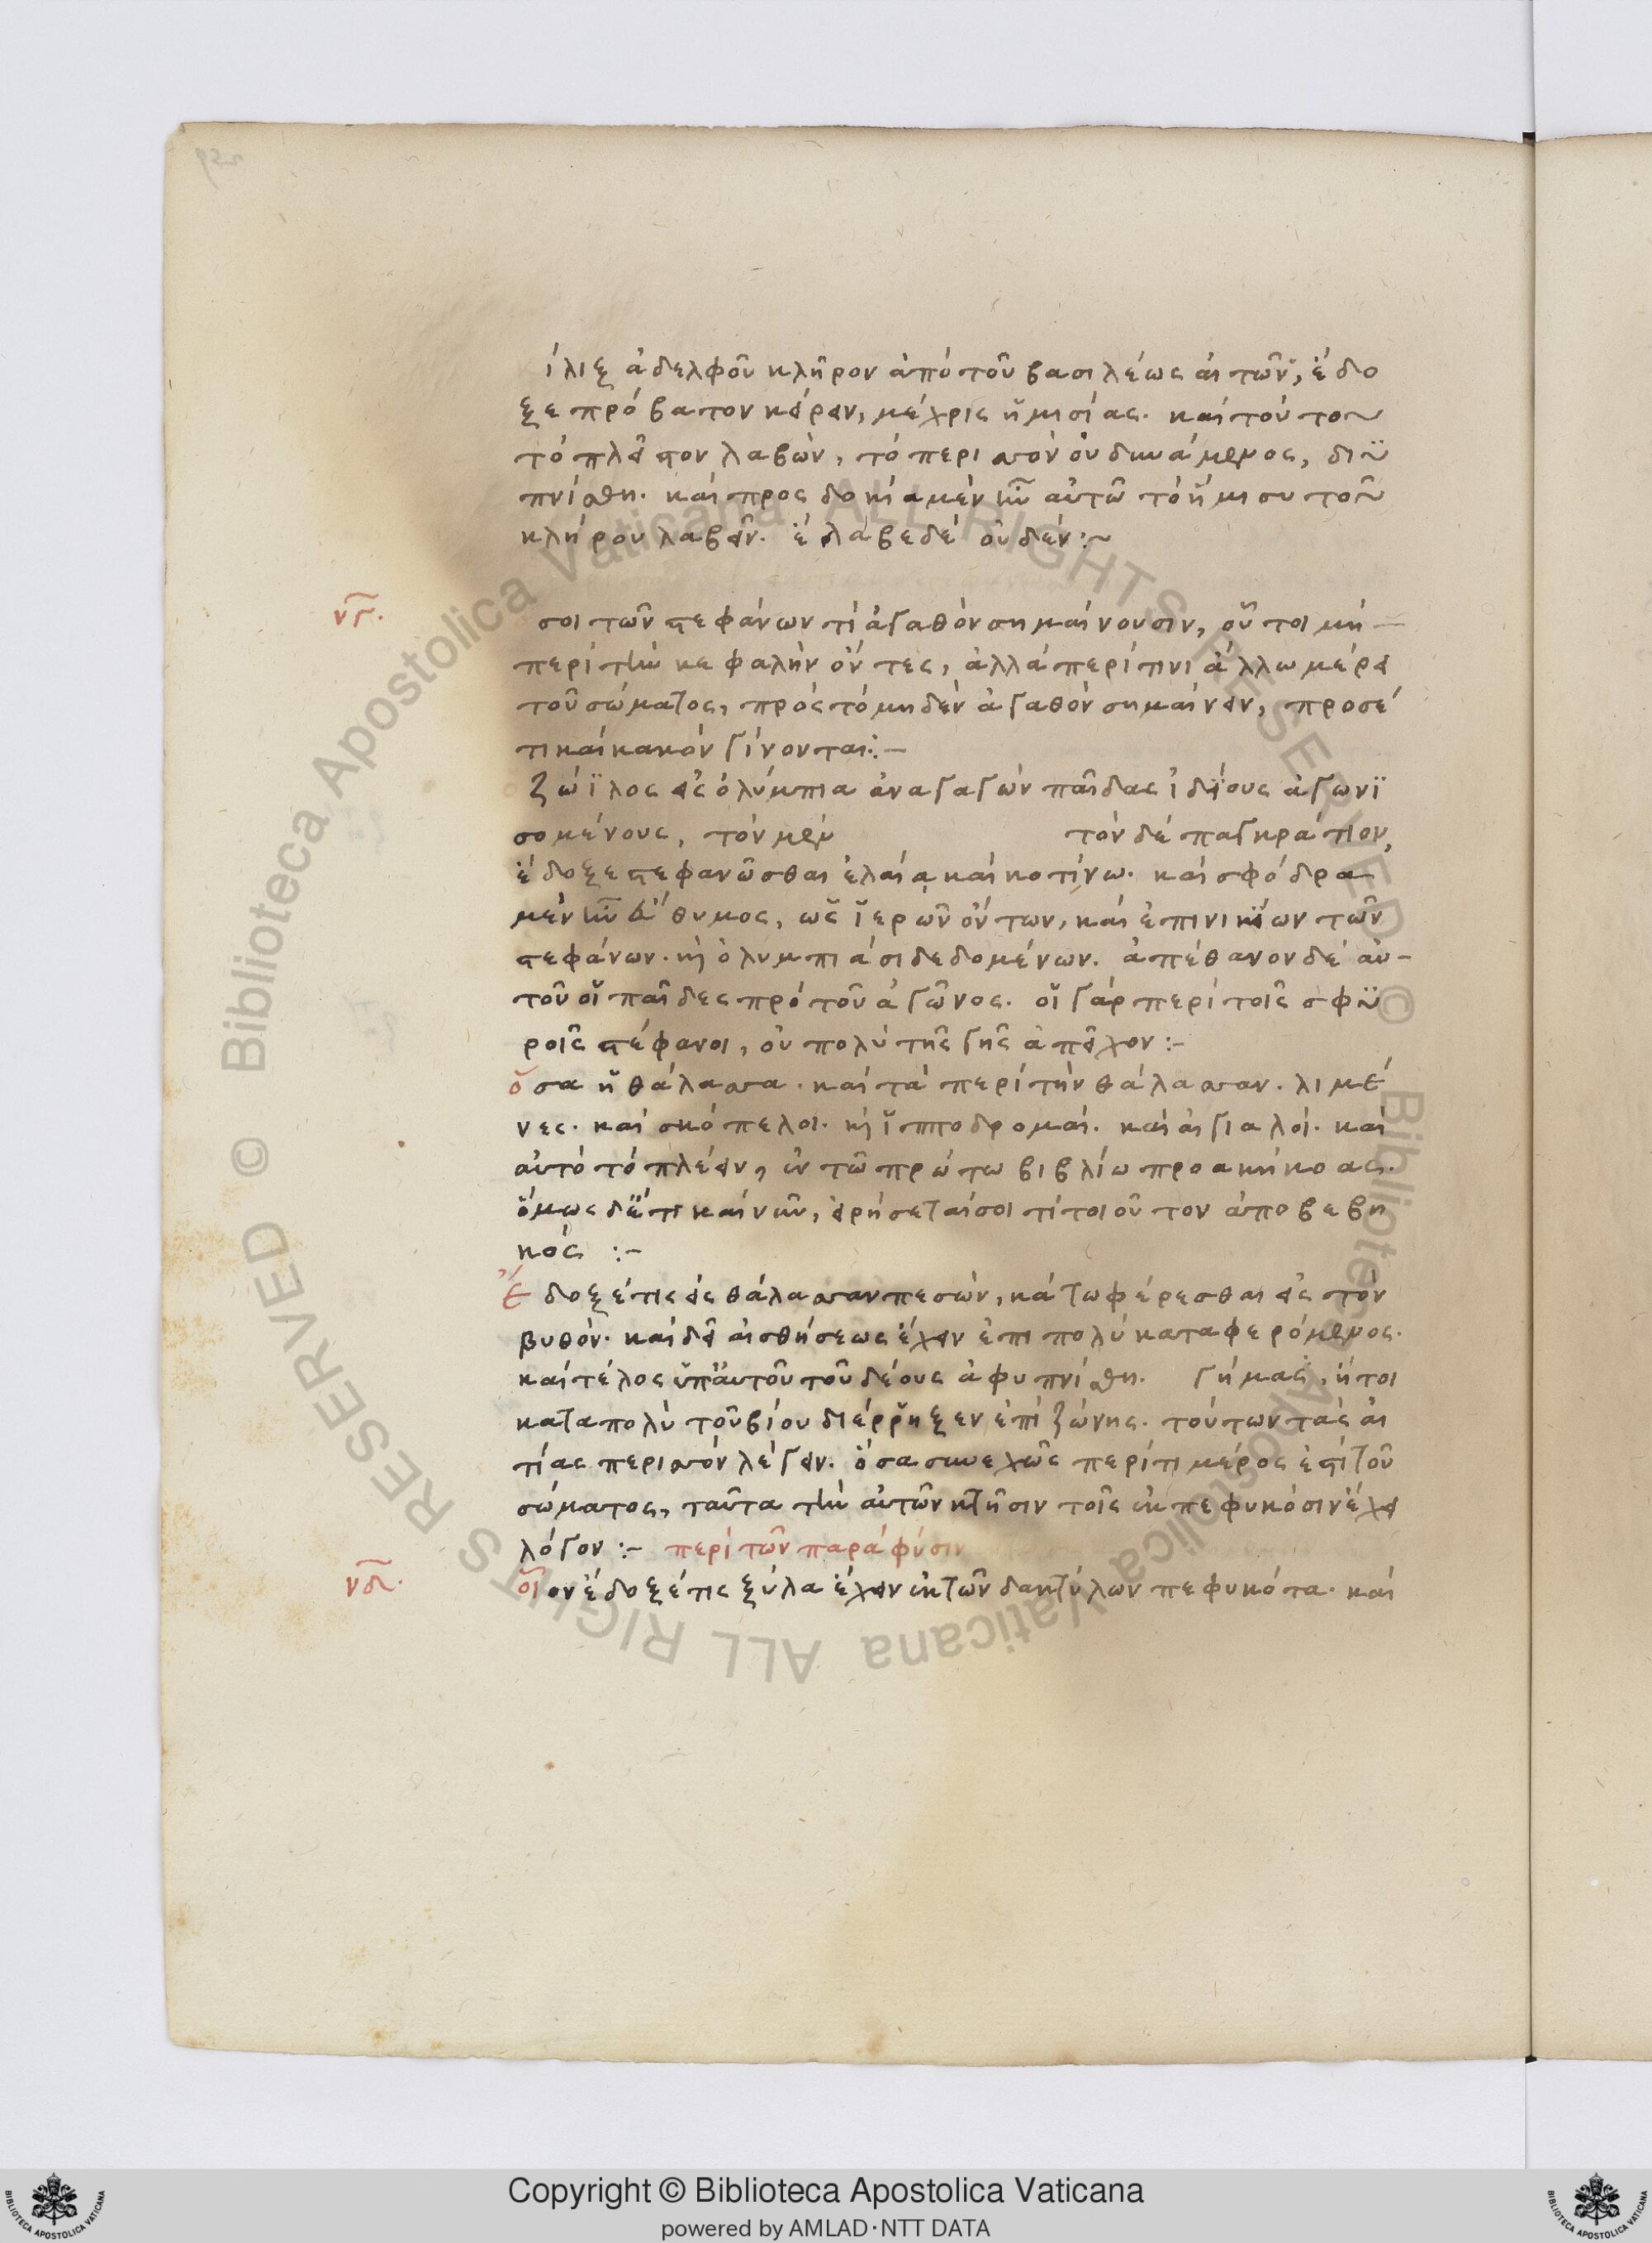 ίλιξ ἀδελφοῦ κλῆρον ἀπὸ τοῦ βασιλέως αἰτῶν, ἔδο
ξε πρόβατον κείρειν, μέχρις ἡμισίας. καὶ τοῦτον
τὸ πλεῖστον λαβὼν, τὸ περισσὸν οὐ δυνάμενος, διυ
πνίσθη. καὶ προςδοκία μὲν ἦν αὐτῶ τὸ ἥμισυ τοῦ
κλήρου λαβεῖν. ἔλαβε δὲ οὐδέν :~
νγ.
σοι τῶν στεφάνων τὶ ἀγαθὸν σημαίνουσιν, οὗτοι μὴ
περὶ τὴν κεφαλὴν ὄντες, ἀλλὰ περί τινι ἄλλω μέρει
τοῦ σώματος, πρὸς τὸ μηδὲν ἀγαθὸν σημαίνειν, προσέ
τι καὶ κακὸν γίνονται :-
ζώϊλος εἰς ὀλύμπια ἀναγαγὼν παῖδας ἰδίους ἀγωνι
σομένους, τὸν μὲν τὸν δὲ παγκράτιον,
ἔδοξε στεφανῶσθαι ἐλαία καὶ κοτίνω. καὶ σφόδρα
μὲν ἦν εὔθυμος, ὡς ἱερῶν ὄντων, καὶ ἐπινικίων τῶν
στεφάνων. καὶ ὀλυμπιάσι δεδομένων. ἀπέθανον δὲ αὐ-
τοῦ οἱ παῖδες πρὸ τοῦ ἀγῶνος. οἱ γὰρ περὶ τοῖς σφυ
ροῖς στέφανοι, οὐ πολὺ τῆς γῆς ἀπεῖχον :-
ὅσα ἡ θάλασσα. καὶ τὰ περὶ τὴν θάλασσαν. λιμέ
νες. καὶ σκόπελοι. καὶ ἱπποδρομαί. καὶ αἰγιαλοί. καὶ
αὐτὸ τὸ πλέειν, ἐν τῶ πρώτω βιβλίω προακήκοας.
ὅμως δέ τι καὶ νῦν, εἰρήσεταί σοι τί τοιοῦτον ἀποβεβη
κός :-
Ἔδοξέ τις εἰς θάλασσαν πεσὼν, κάτω φέρεσθαι εἰς τὸν
βυθόν. καὶ δὲ αἰσθήσεως ἔχειν ἐπὶ πολὺ καταφερόμενος.
καὶ τέλος ὑπ' αὐτοῦ τοῦ δέους ἀφυπνίσθη. γήμας, ἤτοι
κατὰ πολὺ τοῦ βίου διέρρηξεν ἐπὶ ζώνης. τούτων τὰς αἰ
τίας περισσὸν λέγειν. ὅσα συνεχῶς περί τι μέρος ἐστὶ τοῦ
σώματος, ταῦτα τὴν αὐτῶν κτῆσιν τοῖς ἐκπεφυκόσιν ἔχει
λόγον :- περὶ τῶν παρὰ φύσιν
νδ.
οἷον ἔδοξέ τις ξύλα ἔχειν ἐκ τῶν δακτύλων πεφυκότα. καὶ
© Biblioteca Apostolica Vaticana ALL RIGHTS RESERVED © Biblioteca Apostolica Vaticana ALL RIGHTS RESERVED
Copyright © Biblioteca Apostolica Vaticana
powered by AMLAD·NTT DATA
BIBLIOTECA APOSTOLICA VATICANA
BIBLIOTECA APOSTOLICA VATICANA